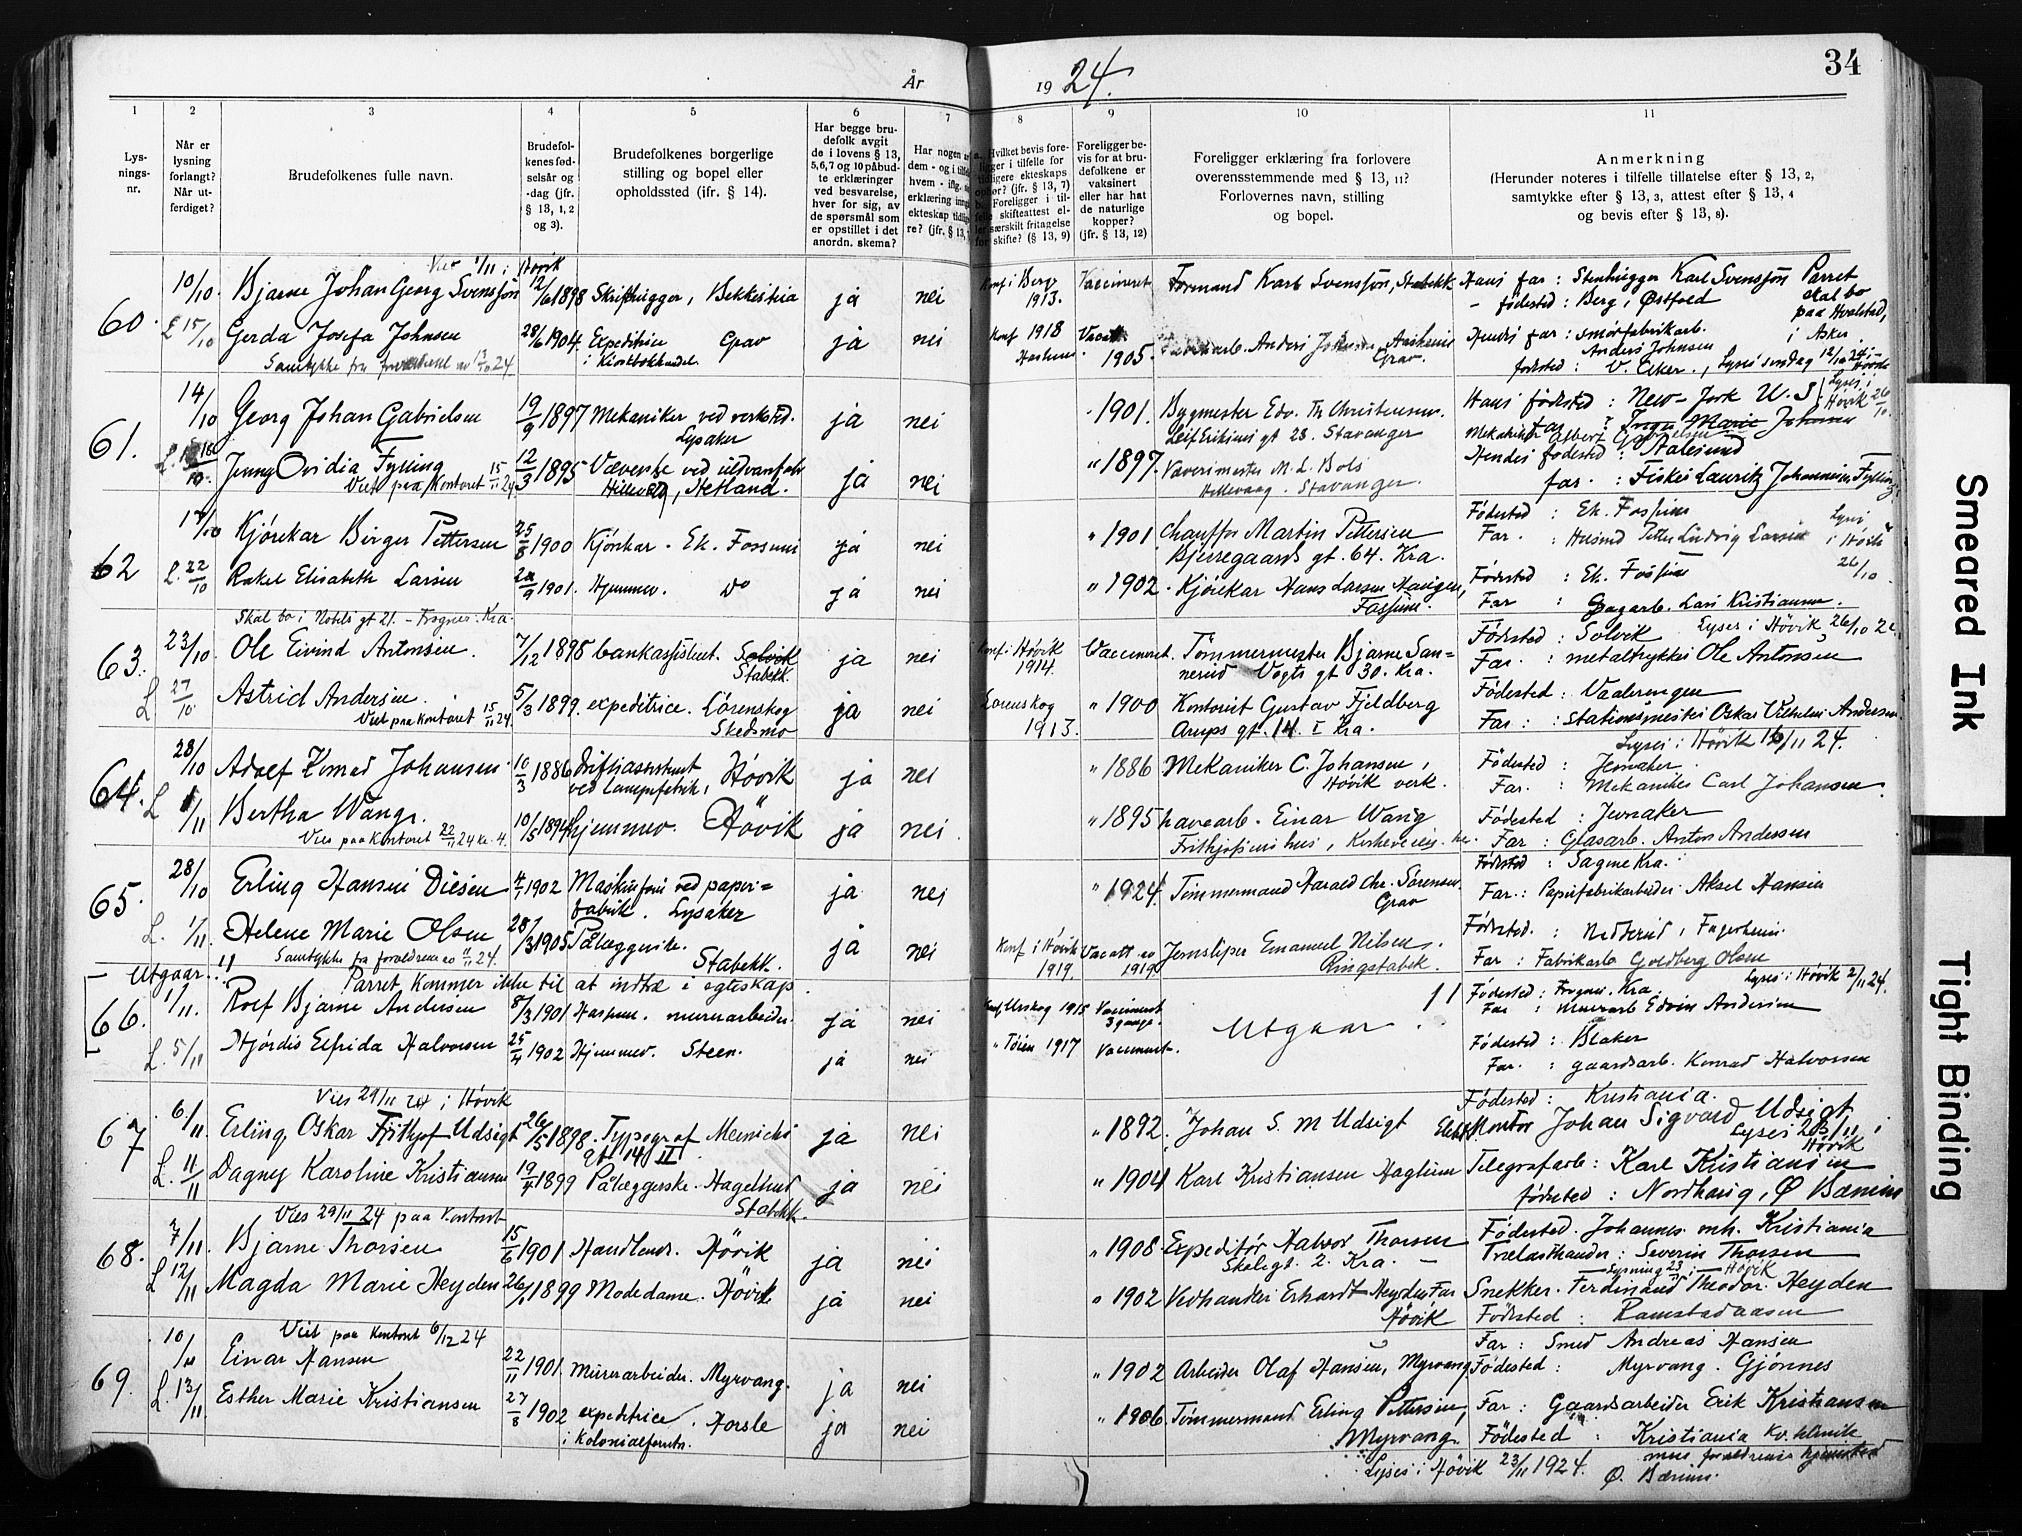 År 19 24.
34
1 2 3 4 5 6 7 8 9 10 11
Lys-
nings-
nr.
Når er
lysning
forlangt?
Når ut-
ferdiget?
Brudefolkenes fulle navn.
Brudefol-
kenes fød-
selsår og
-dag (jfr.
§ 13, 1, 2
og 3).
Brudefolkenes borgerlige
stilling og bopel eller
opholdssted (ifr. § 14).
Har begge bru-
defolk avgit
de i lovens § 13,
5,6,7 og 10 påbud-
te erklæringer
ved besvarelse,
hver for sig, av
de spørsmål som
er opstillet i det
anordn. skema?
Har nogen
dem - og i
hvem - iflg.
erklæring
ekteskap
re? (jfr. § 13,
Hvilket bevis fore-
ligger i tilfelle for
tidligere ekteskaps
ophør? (jfr. § 13, 7)
Foreligger i til-
felle skifteattest el-
ler særskilt fritagelse
for skifte? (§ 13, 9)
Foreligger be-
vis for at bru-
defolkene er
vaksinert
eller har hat
de naturlige
kopper?
(jfr. § 13, 12)
Foreligger erklæring fra forlovere
overensstemmende med § 13, 11?
Forlovernes navn, stilling
og bopel.
Anmerkning
(Herunder noteres i tilfelle tillatelse efter § 13, 2,
samtykke efter § 13, 3, attest efter § 13, 4
og bevis efter § 13, 8).
Vies 1/11 i Høvik
60. 10/10. Bjarne Johan Georg Svensson 12/6 1898 Skrifthugger, Bekkestua ja nei Konf i Berg 1913. Vaccineret Formand Karl Svensson, Stabekk Hans far: Stenhugger Karl Svensson Parret
- fødested: Berg i Østfold skal bo
paa Hvalstad,
i Asker
L 15/10 Gerda Josefa Johnsen 28/6 1904. Expeditrice Grav ja nei Konf 1918 Vacatt 1905. Anders Grav. Hendes far: smørfabrikarb.
i Kiosk
Samtykke fra 13/10 24
Anders Johnsen
fødested: V. Aker., Lyses søndag 12/10 24 i Høvik
61. 14/10 Georg Johan Gabrielsen 19/9 1897 Mekaniker ved verksted. Lysaker ja nei " 1901. Bygmester Edv. Th Christensen.
Leif Eriksens gt 28. Stavanger
Hans fødested: New-York U.S. Lyses i Høvik 26/10
Mekaniker Albert Gabrielsen
L. 18/10. Jenny Ovidia Fylling 12/3 1895 Væverske ved uldvarefabr. Hillevåg, Hetland. ja nei " 1897. Væverimester M. L. Bols
Hillevaag. Stavanger.
Viet paa kontoret 15/11 24
Hendes fødested: Aalesund
far.: Fisker Lauritz Johannesen Fylling
62 17/10 Kjørekar Birger Pettersen 25/8 1900 Kjørekar. Ek. Fossum ja nei " 1901 Chauffør Martin Pettersen
Bjerregaards gt. 64. Kra.
Fødested: Ek. Fossum Lyses
Far.: Husmd Petter Ludvig Larsen i Høvik
26/10
L. 22/10 Rakel Elisabeth Larsen 1901. Hjemmev. Do ja nei " 1902. Kjørekar Hans Larsen Haugen,
Fossum.
Fødested: Ek. Fossum
Far: Sagarb. Lars Kristiansen.
Skal bo i Nobels gt 21. - Frogner. Kra.
63. 23/10 Ole Eivind Antonsen. 7/12 1898 bankassistent. Solvik Stabekk. ja nei Konf. i Høvik 1914. Vaccineret. Tømmermester Bjarne San=
nerud Vogts gt 30. Kra.
Fødested: Solvik Lyses i Høvik 26/10 24
Far.: metaltrykker Ole Antonsen
L 27/10 Astrid Andersen. 5/3 1899. expeditrice. Lørenskog Skedsmo ja nei Lørenskog 1913. " 1900 Kontorist Gustav Fjeldberg
Arups gt. 14. I Kra.
Viet paa kontoret 15/11 24.
Fødested: Vaalerengen
Far:: Stationsmester Oskar Vilhelm Andersen
64. 28/10 Adolf Konrad Johansen. 10/3 1886 Driftsassistent
ved Lampefabrik, Høvik ja nei " 1886 Mekaniker C. Johansen,
Høvik verk.
Lyses i Høvik 16/11 24.
Fødested: Jevnaker.
Far.: Mekaniker Carl Johansen.
L 1/11 Bertha Wang. 10/5 1894 hjemmev. Høvik ja nei. " 1895 havearb. Einar Wang
Frithjofsens hus, Kirkeveien. her
Vies paa Kontoret 22/11 24 kl. 4.
Fødested: Jevnaker
Far: Glasarb. Anton Andersen
65. 28/10 Erling Hansen Diesen 4/1 1902 Maskinfører ved papir=
fabrik. Lysaker ja nei " 1924. Tømmermand Harald Chr. Sørensen.
Grav
Fødested: Sagene Kra.
Far.: Papirfabrikarbeider Aksel Hansen
L. 1/11. Helene Marie Olsen 28/3 1905 Pålæggerske. Stabekk. ja nei Konf i Høvik 1919. Vacatt av 1919 Jernsliper Emanuel Nilsen.
Ringstabek.
Samtykke fra forældrene av 24.
Fødested.: Nadderud, Fagerheim.
Far: Fabrikarb Goldberg Olsen
Utgaar..!! Parret kommer ikke til at indtræ i egteskap. Lyses i Høvik 2/11 24.
66. 1/11. Rolf Bjarne Andersen 8/3 1901 Haslum. murerarbeider. ja nei Konf. Urskog 1915 Vaccineret 3 gange. Utgaar..!! Fødested: Frogner. Kra.
Far: Murerarb Edvin Andersen
L. 5/11 Hjørdis Elfrida Halvorsen 25/4 1902 Hjemmev. Steen. ja nei " Tøien 1917 Vaccineret. Fødested: Blaker
Far.: gaardsarb. Konrad Halvorsen
Vies 29/11 24 i Høvik
67 6/11 Erling Oskar Frithjof Udsigt 26/5 1898. Typograf Meinichs
gt. 14 II. ja nei " 1892. Johan S. M Udsigt
Fødested: Kristiania.
Johan Sigvard Udsigt,
Lyses 23/11 i
Høvik
L. 11/11 Dagny Karoline Kristiansen 19/4 1899 Pålæggerske. Stabekk. ja nei " 1904 Karl Kristiansen Haglum Telegrafarb: Karl Kristiansen
fødested: Nordhaug, Ø Bærum
Vies 29/11 24 paa Kontoret
68. 7/11. Bjarne Thorsen 15/6 1901 Handlende. Høvik ja nei " 1908. Expeditør Halvor Thorsen
Skolegt. 2. Kra. -
Fødested. Johannes mh. Kristiania
Trælasthandler: Severin Thorsen
Lysning 23/11 i Høvik
L 12/11 Magda Marie Heyden 26/1 1899 Modedame. Høvik ja nei " 1902 Vedhandler Erhardt Heyden Far Snekker. Ferdinand Theodor Heyden
Høvik Fødested: Ramstadaasen
Viet paa kontoret 6/12 24
69. 10/11 Einar Hansen 22/11 1901 murerarbeider. Myrvang. ja nei " 1902 Arbeider Olaf Hansen, Myrvang Far: Smed Andreas Hansen
Fødested: Myrvang. Gjønnes
L. 13/11 Esther Marie Kristiansen 27/8 1902 expeditrice.
i Kolonialforretn. Horsle ja nei " 1906. Tømmermand Erling Pettersen,
Myrvang
Far: Gaardsarbeider Erik Kristiansen
Fødested: Kristiania Kv. klinik
men forældrenes hjemsted
Ø. Bærum.
Lyses i Høvik 23/11 1924.
Smeared Ink
Tight Binding